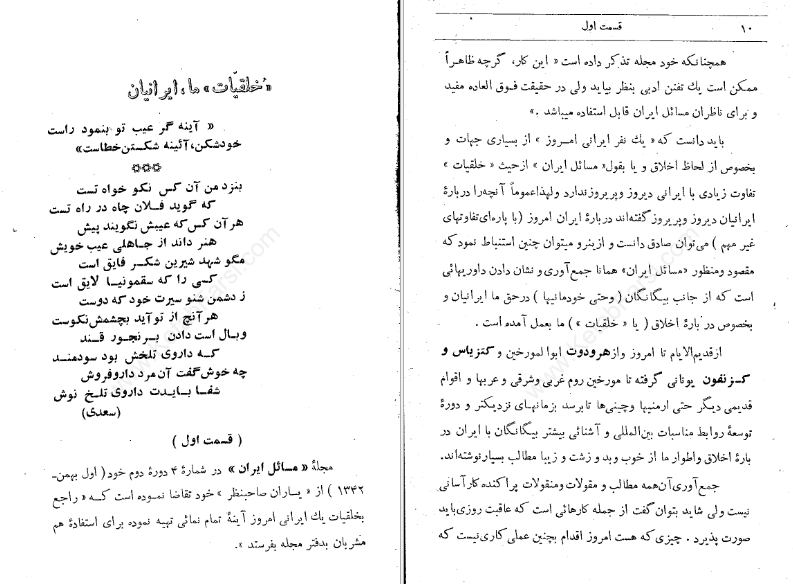 «خلقیّات» ما، ایرانیان
« آینه گر عیب تو بنمود راست
خودشکن، آئینه شکستن خطاست»
بنزد من آن کس نکو خواه تست
که گوید فلان چاه در راه تست
هر آن کس که عیبش نگویند پیش
هنر داند از جاهلی عیب خویش
مگو شهد شیرین شکر فایق است
کسی را که سقمونیا لایق است
ز دشمن شنو سیرت خود که دوست
هر آنچ از تو آید بچشمش نکوست
وبال است دادن برنجور قند
که داروی تلخش بود سودمند
چه خوش گفت آن مرد داروفروش
شفا بایدت داروی تلخ نوش
(سعدی)
( قسمت اول )
مجلهٔ « مسائل ایران » در شمارهٔ ۴ دورهٔ دوم خود (اول بهمن-
۱۳۴۲ ) از « یاران صاحبنظر » خود تقاضا نموده است که « راجع
بخلقیات یك ایرانی امروز آینهٔ تمام نمائی تهیه نموده برای استفادهٔ هم
مشربان بدفتر مجله بفرستد ».
۱۰ قسمت اول
همچنانکه خود مجله تذکر داده است « این کار، گرچه ظاهراً
ممکن است یك تفنن ادبی بنظر بیاید ولی در حقیقت فوق العاده مفید
و برای ناظران مسائل ایران قابل استفاده میباشد .»
باید دانست که « یك نفر ایرانی امروز » از بسیاری جهات و
بخصوص از لحاظ اخلاق و یا بقول « مسائل ایران » از حیث « خلقیات »
تفاوت زیادی با ایرانی دیروز و پریروز ندارد ولهذا عموماً آنچه را دربارهٔ
ایرانیان دیروز و پریروز گفته‌اند دربارهٔ ایران امروز (با پاره‌ای تفاوتهای
غیر مهم ) می‌توان صادق دانست و از ینرو میتوان چنین استنباط نمود که
مقصود و منظور «مسائل ایران» همانا جمع‌آوری و نشان دادن داوریهائی
است که از جانب بیگانگان ( وحتی خودمانیها ) در حق ما ایرانیان و
بخصوص در بارهٔ اخلاق ( یا « خلقیات » ) ما بعمل آمده است .
از قدیم‌الایام تا امروز و از هرودوت ابوالمورخین و کتزیاس و
کزنفون یونانی گرفته تا مورخین روم غربی و شرقی و عربها و اقوام
قدیمی دیگر حتی ارمنیها و چینی‌ها تا برسد بزمانهای نزدیکتر و دورهٔ
توسعهٔ روابط مناسبات بین‌المللی و آشنائی بیشتر بیگانگان با ایران در
بارهٔ اخلاق و اطوار ما از خوب و بد و زشت و زیبا مطالب بسیار نوشته‌اند.
جمع‌آوری آن همه مطالب و مقولات و منقولات پراکنده کار آسانی
نیست ولی شاید بتوان گفت از جمله کارهائی است که عاقبت روزی باید
صورت پذیرد . چیزی که هست امروز اقدام بچنین عملی کاری نیست که